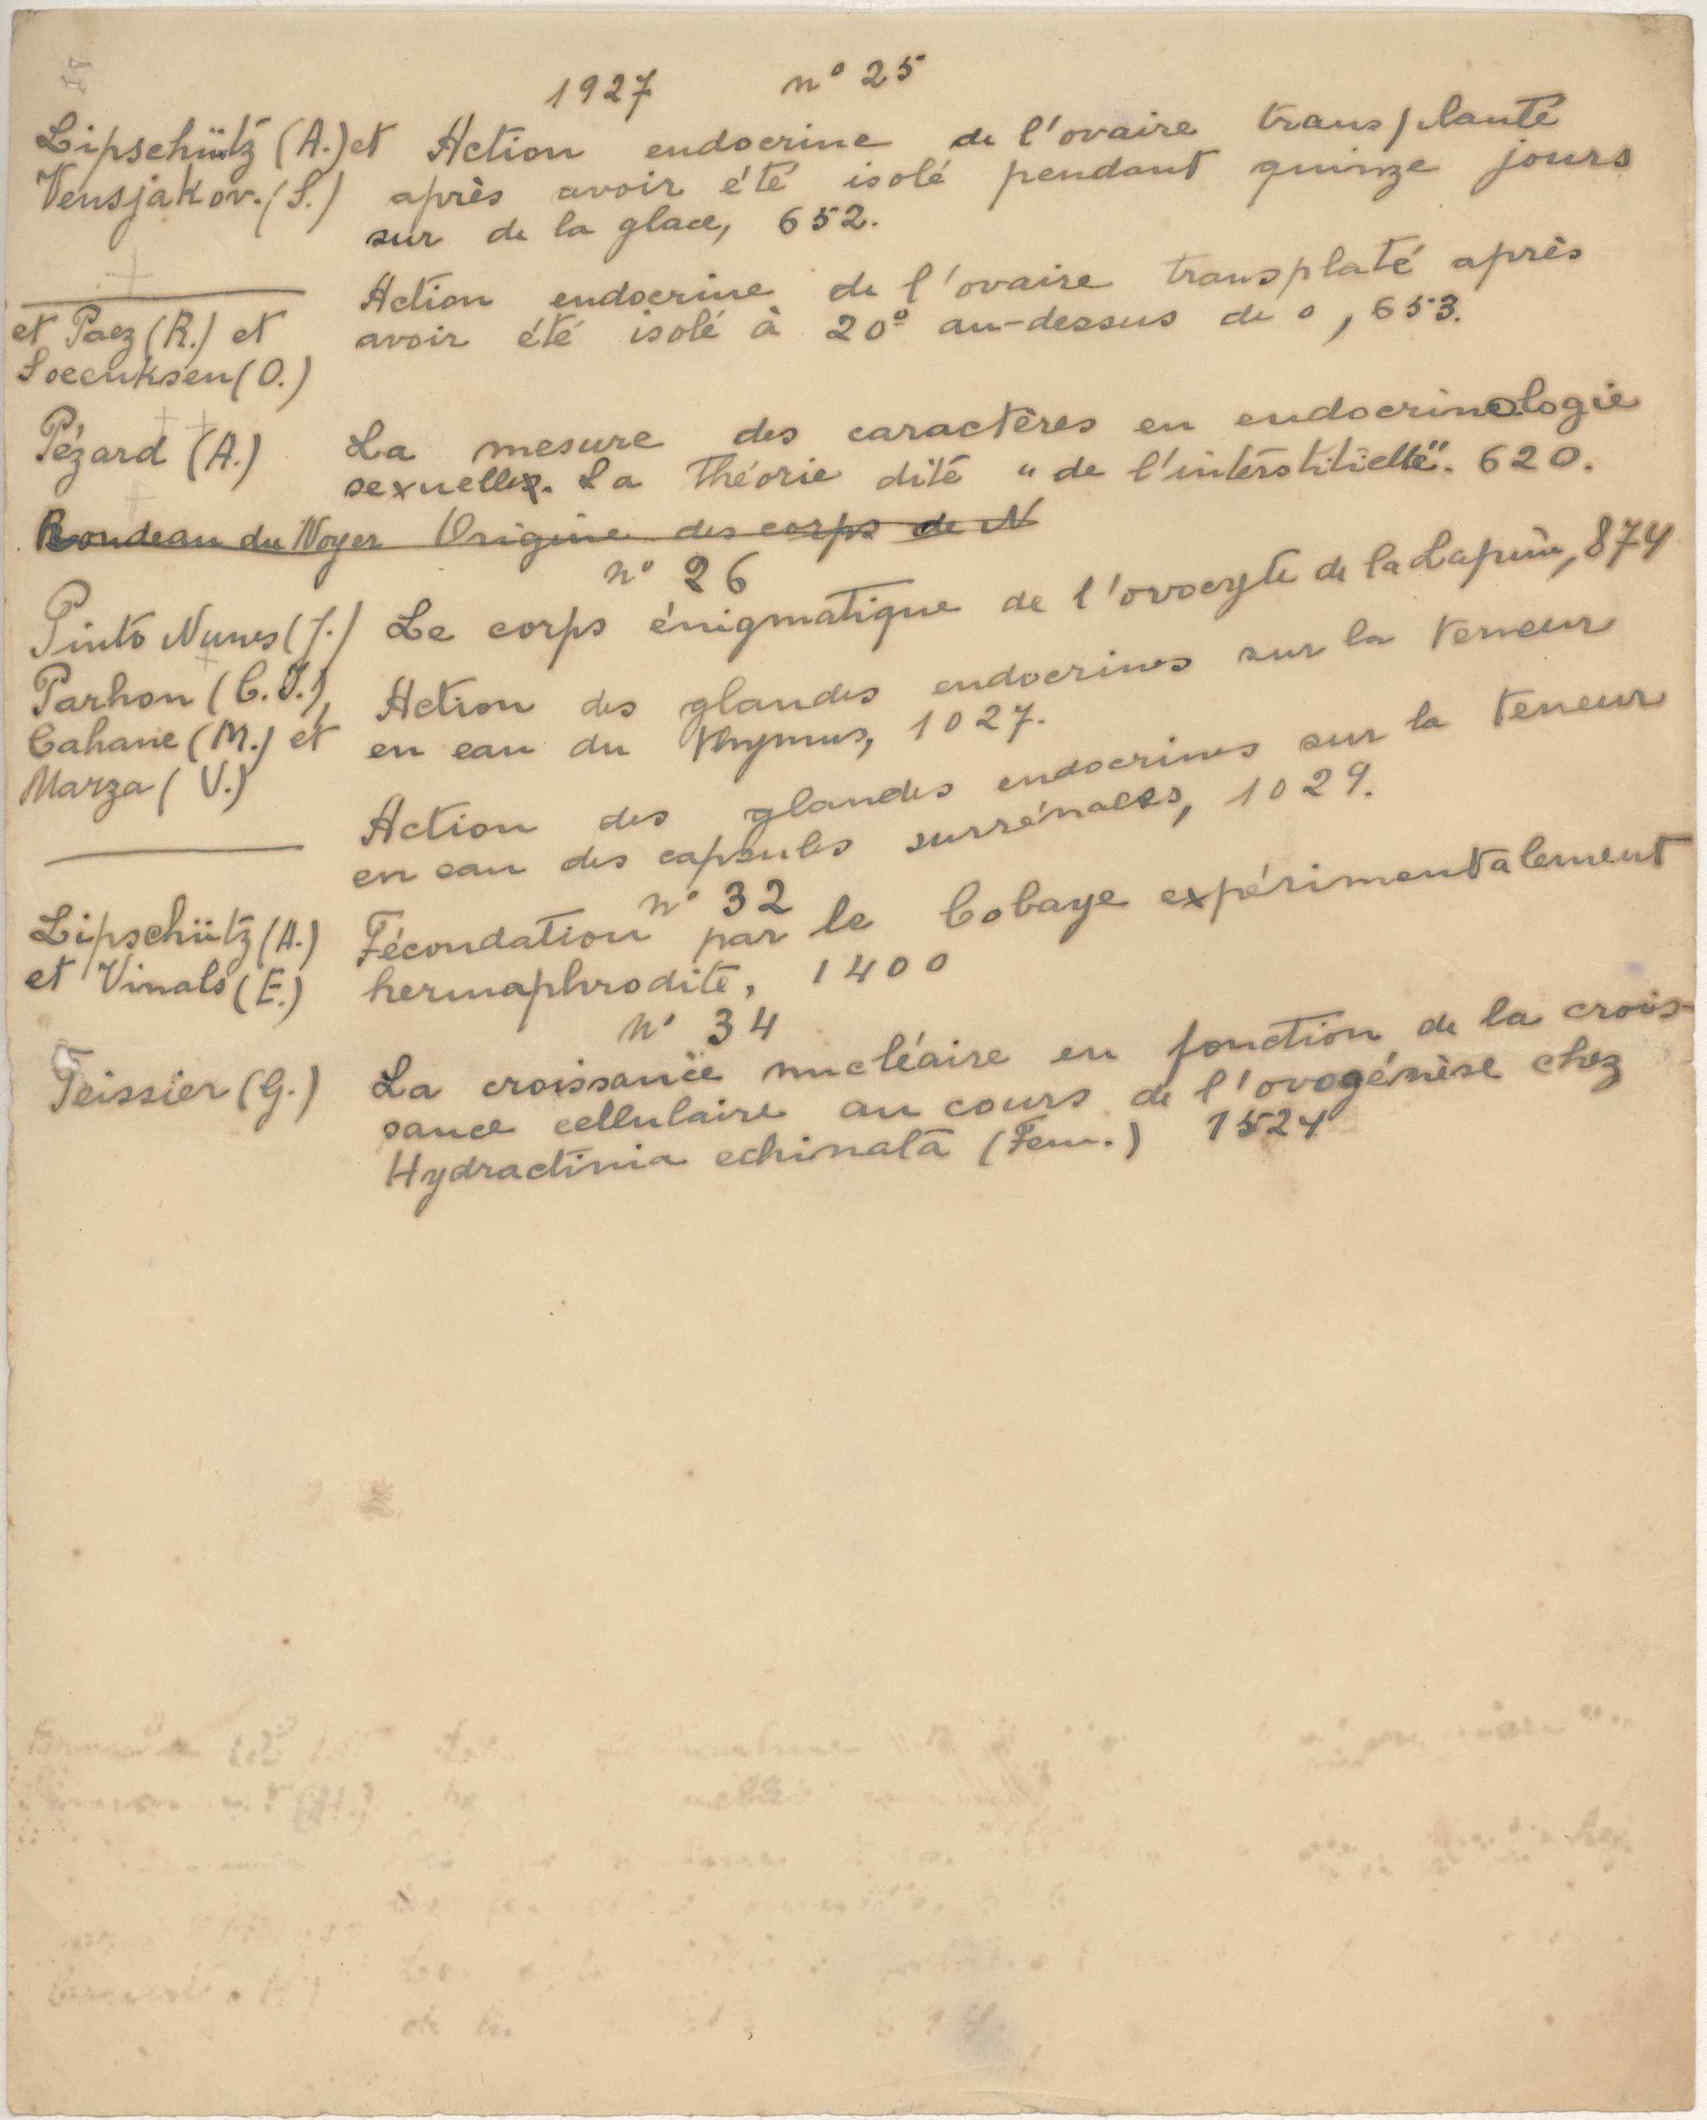 1927 n° 25
Lipschütz (A.) et Action endocrine de l'ovaire transplanté
Vensjakov. (S.) après avoir été isolé pendant quinze jours
sur de la glace, 652.
Action endocrine de l'ovaire transplaté après
et Paez (R.) et avoir été isolé à 20° au-dessus de 0, 653.
(O.)
Pézard (A.) La mesure des caractères en endocrinologie
sexuelles. La théorie dité "de l'interstitielle". 620.
Rondeau du Noyer Origine des corps de N
n° 26
Pinto Nunes (J.) Le corps énigmatique de l'ovocyte de la Lapine, 874
Parhon (C. I.), Action des glandes endocrines sur la teneur
Cahane (M.) et en eau du thymus, 1027.
Marza (V.)
Action des glandes endocrines sur la teneur
en eau des capsules surrénales, 1029.
n° 32
Lipschütz (A.) Fécondation par le Cobaye expérimentalement
et Vinals (E.) hermaphrodite, 1400
n° 34
Teissier (G.) La croissance nucléaire en fonction de la crois-
sance cellulaire au cours de l'ovogénèse chez
Hydractinia echinata (Fem.) 1524